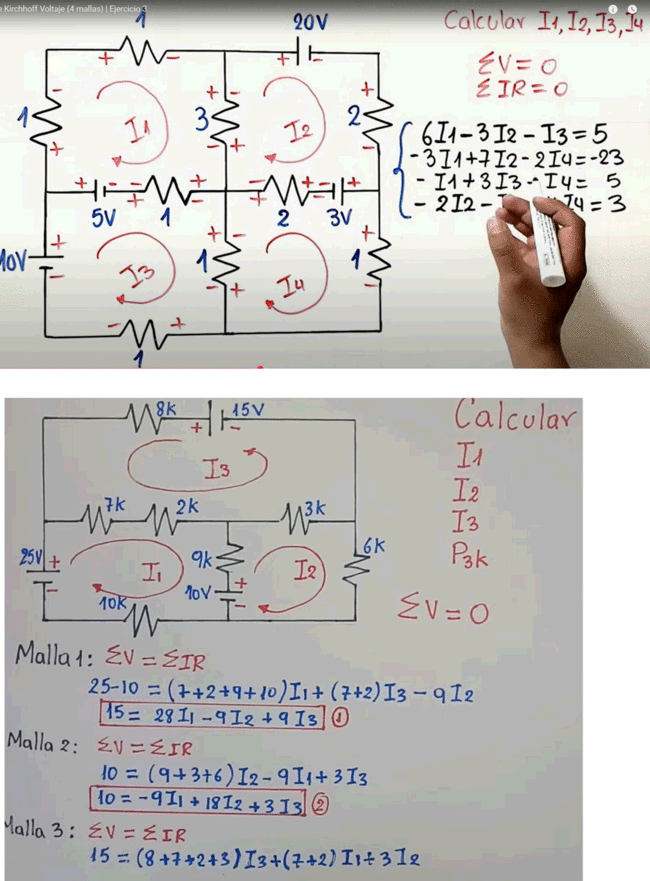 Kirchhoff Voltaje (4 mallas) | Ejercicio 3
1
20V
Calcular I1, I2, I3, I4
ΣV=0
ΣIR=0
1
I1
3
I2
2
6I1-3I2-I3=5
-3I1+7I2-2I4=-23
-I1+3I3-I4= 5
-2I2-I I4=3
5V
1
2
3V
10V
I3
1
I4
1
1
8k
15V
Calcular
I3
I1
7k
2k
3k
I2
I3
25V
I1
9k
I2
6k
P3k
10V
10k
ΣV=0
Malla 1: ΣV=ΣIR
25-10=(7+2+9+10)I1+(7+2)I3-9I2
15= 28I1-9I2+9I3 ①
Malla 2: ΣV=ΣIR
10=(9+3+6)I2-9I1+3I3
10=-9I1+18I2+3I3 ②
Malla 3: ΣV=ΣIR
15=(8+7+2+3)I3+(7+2)I1+3I2